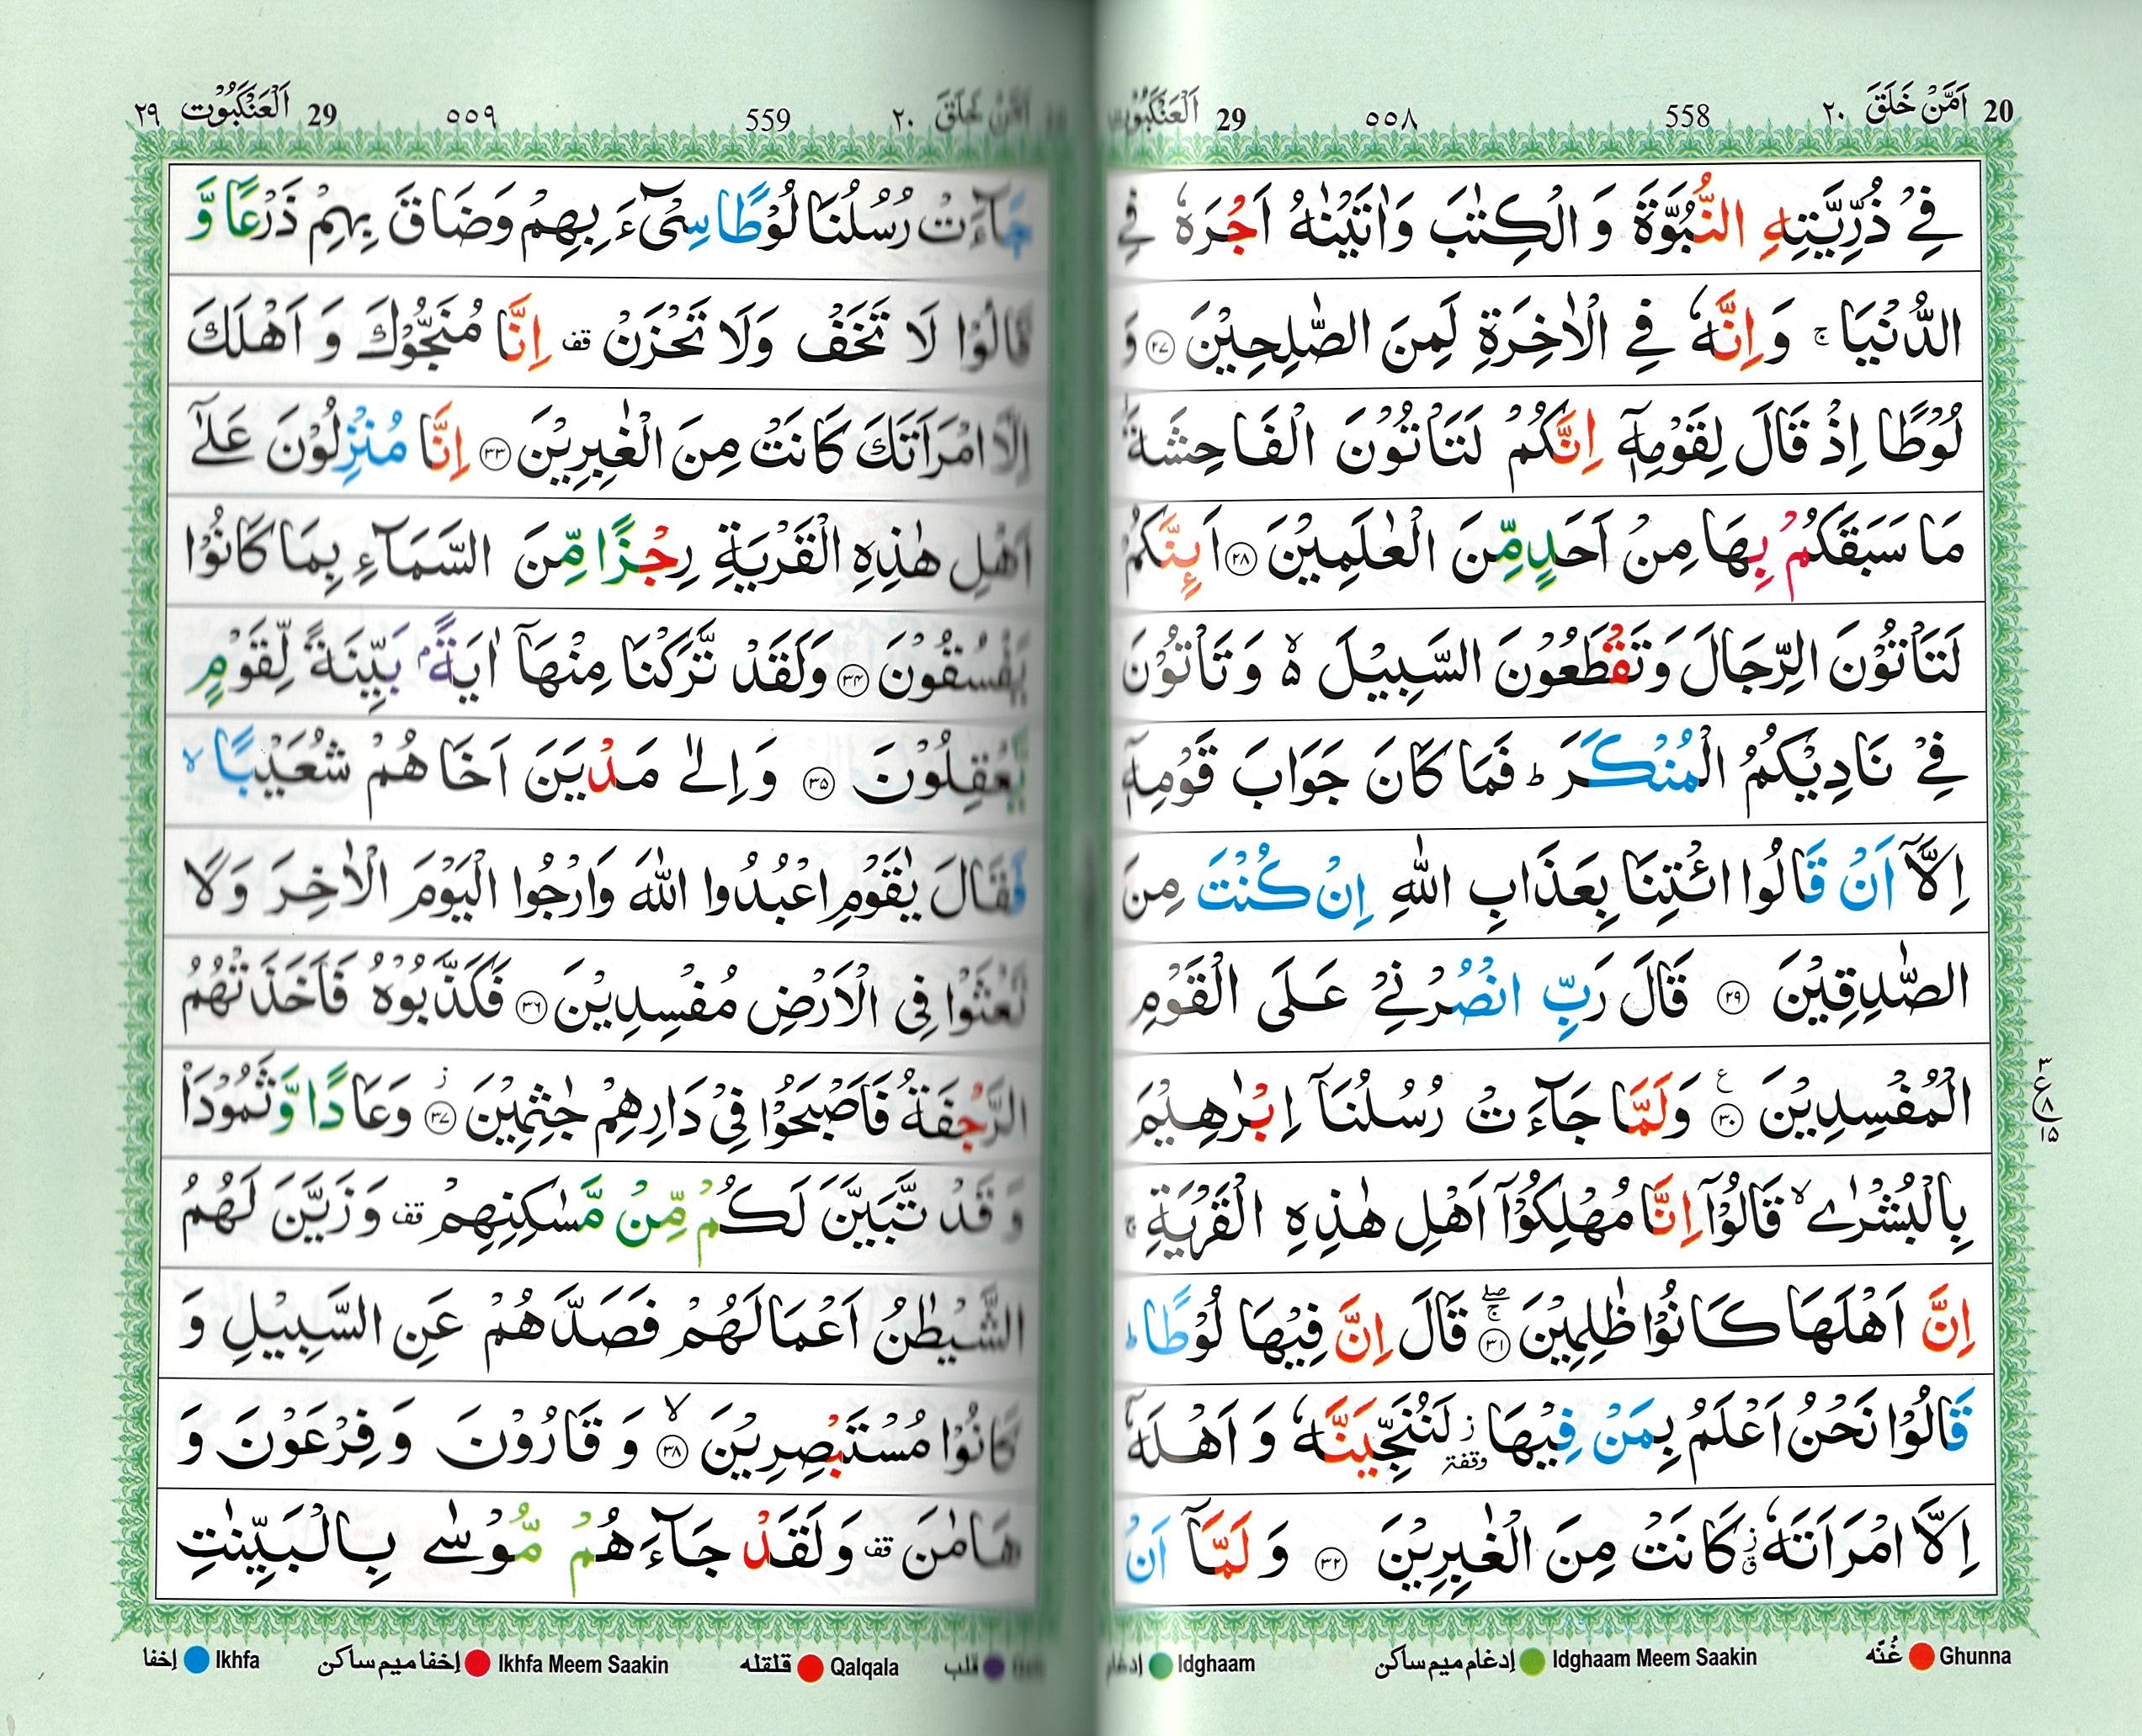 20 اَمَّنْ خَلَقَ ٢٠ 558 ٥٥٨ 29 اَلْعَنْكَبُوْت
فِيْ ذُرِّيَّتِهِ النُّبُوَّةَ وَ الْكِتٰبَ وَاٰتَيْنٰهُ اَجْرَهٗ فِي
الدُّنْيَا ۚ وَ اِنَّهٗ فِي الْاٰخِرَةِ لَمِنَ الصّٰلِحِيْنَ ﴿٢٧﴾ وَ
لُوْطًا اِذْ قَالَ لِقَوْمِهٖٓ اِنَّكُمْ لَتَاْتُوْنَ الْفَاحِشَةَ
مَا سَبَقَكُمْ بِهَا مِنْ اَحَدٍ مِّنَ الْعٰلَمِيْنَ ﴿٢٨﴾ اَىِٕنَّكُمْ
لَتَاْتُوْنَ الرِّجَالَ وَتَقْطَعُوْنَ السَّبِيْلَ ۙ۬ وَ تَاْتُوْنَ
فِيْ نَادِيْكُمُ الْمُنْكَرَ ؕ فَمَا كَانَ جَوَابَ قَوْمِهٖٓ
اِلَّآ اَنْ قَالُوا ائْتِنَا بِعَذَابِ اللّٰهِ اِنْ كُنْتَ مِنَ
الصّٰدِقِيْنَ ﴿٢٩﴾ قَالَ رَبِّ انْصُرْنِيْ عَلَى الْقَوْمِ
الْمُفْسِدِيْنَ ﴿٣٠﴾ ع وَلَمَّا جَآءَتْ رُسُلُنَآ اِبْرٰهِيْمَ
٣ ع ٨ ١٥
بِالْبُشْرٰى ۙ قَالُوْٓا اِنَّا مُهْلِكُوْٓا اَهْلِ هٰذِهِ الْقَرْيَةِ ۚ
اِنَّ اَهْلَهَا كَانُوْا ظٰلِمِيْنَ ﴿٣١﴾ قَالَ اِنَّ فِيْهَا لُوْطًا ؕ
قَالُوْا نَحْنُ اَعْلَمُ بِمَنْ فِيْهَا ز وقفة لَنُنَجِّيَنَّهٗ وَ اَهْلَهٗٓ
اِلَّا امْرَاَتَهٗ ق ز كَانَتْ مِنَ الْغٰبِرِيْنَ ﴿٣٢﴾ وَ لَمَّآ اَنْ
Ghunna غُنّه Idghaam Meem Saakin إدغام ميم ساكن Idghaam إدغام
اَمَّنْ خَلَقَ ٢٠ 559 ٥٥٩ 29 اَلْعَنْكَبُوْت ٢٩
جَآءَتْ رُسُلُنَا لُوْطًا سِيْٓءَ بِهِمْ وَضَاقَ بِهِمْ ذَرْعًا وَّ
قَالُوْا لَا تَخَفْ وَلَا تَحْزَنْ قف اِنَّا مُنَجُّوْكَ وَ اَهْلَكَ
اِلَّا امْرَاَتَكَ كَانَتْ مِنَ الْغٰبِرِيْنَ ﴿٣٣﴾ اِنَّا مُنْزِلُوْنَ عَلٰٓى
اَهْلِ هٰذِهِ الْقَرْيَةِ رِجْزًا مِّنَ السَّمَآءِ بِمَا كَانُوْا
يَفْسُقُوْنَ ﴿٣٤﴾ وَلَقَدْ تَّرَكْنَا مِنْهَآ اٰيَةًۢ بَيِّنَةً لِّقَوْمٍ
يَّعْقِلُوْنَ ﴿٣٥﴾ وَ اِلٰى مَدْيَنَ اَخَاهُمْ شُعَيْبًا ۙ
فَقَالَ يٰقَوْمِ اعْبُدُوا اللّٰهَ وَارْجُوا الْيَوْمَ الْاٰخِرَ وَلَا
تَعْثَوْا فِي الْاَرْضِ مُفْسِدِيْنَ ﴿٣٦﴾ فَكَذَّبُوْهُ فَاَخَذَتْهُمُ
الرَّجْفَةُ فَاَصْبَحُوْا فِيْ دَارِهِمْ جٰثِمِيْنَ ﴿٣٧﴾ ز وَعَادًا وَّثَمُوْدَا۟
وَ قَدْ تَّبَيَّنَ لَكُمْ مِّنْ مَّسٰكِنِهِمْ قف وَ زَيَّنَ لَهُمُ
الشَّيْطٰنُ اَعْمَالَهُمْ فَصَدَّهُمْ عَنِ السَّبِيْلِ وَ
كَانُوْا مُسْتَبْصِرِيْنَ ﴿٣٨﴾ ۙ وَ قَارُوْنَ وَ فِرْعَوْنَ وَ
هَامٰنَ قف وَلَقَدْ جَآءَهُمْ مُّوْسٰى بِالْبَيِّنٰتِ
قلب Qalqala قلقله Ikhfa Meem Saakin إخفا ميم ساكن Ikhfa إخفا